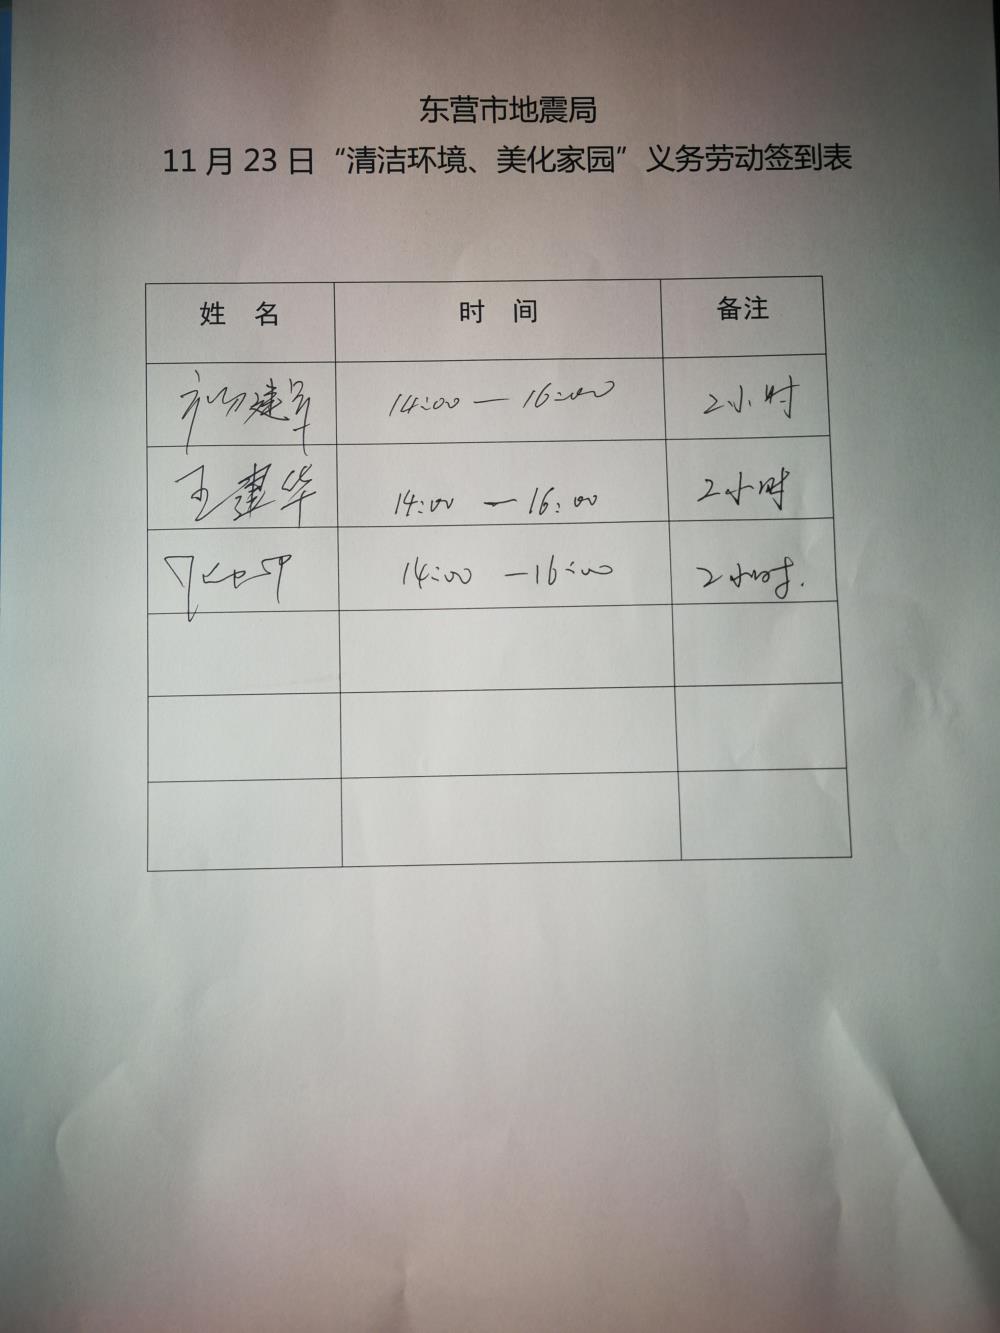 东营市地震局
11月23日“清洁环境、美化家园”义务劳动签到表
姓 名 时 间 备注
建军 14:00 — 16:00 2小时
王建华 14:00 — 16:00 2小时
14:00 — 16:00 2小时.